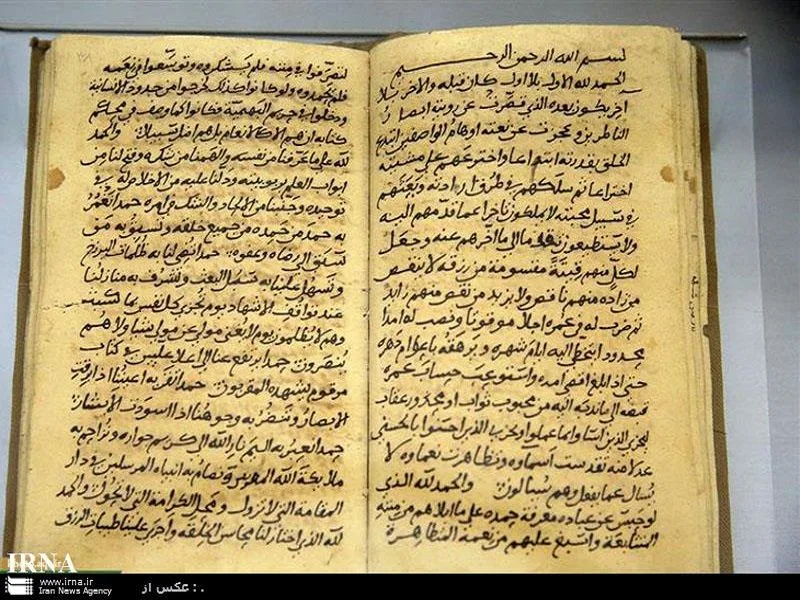 بسم الله الرحمن الرحيم
الحمد لله الاول بلا اول كان قبله والاخر بلا
اخر يكون بعده الذي قصرت عن رويته ابصار
الناظرين وعجزت عن نعته اوهام الواصفين ابتدع
الخلق بقدرته ابتداعا واخترعهم على مشيته
اختراعا ثم سلك بهم في طريق ارادته وبعثهم
في سبيل محبته لا يملكون تاخيرا عما قدمهم اليه
ولا يستطيعون الى ما اخرهم عنه وجعل
لكل منهم مقسومة من رزقه لا ينقص
من زاده منهم ناقص ولا يزيد من نقص منهم زايد
ثم ضرب له في عمره اجلا موقوتا ونصب له امدا
محدودا يتخطى اليه ايام شهره ويرهقه باعوام دهره
حتى اذا بلغ اقصى امده واستوعب حساب عمره
قبضه الى ما ندبه اليه من محبوب ثواب او محذور عقاب
ليجزي الذين اساوا بما عملوا ويجزي الذين احسنوا بالحسنى
عدلا منه تقدست اسماوه وتظاهرت نعماوه لا
يسال عما يفعل وهم يسالون والحمد لله الذي
لو حبس عن عباده معرفة حمده على ما ابلاهم من مننه
المتتابعة واسبغ عليهم من نعمه المتظاهرة
لتصرفوا في مننه فلم يشكروه وتوسعوا في نعمه
فلم يحمدوه ولو كانوا كذلك لخرجوا من حدود الانسانية
ودخلوا في حريم البهيمية فكانوا كما وصف في محكم
كتابه ان هم الا كالانعام بل هم اضل سبيلا والحمد
لله على ما عرفنا من نفسه والهمنا من شكره وفتح لنا من
ابواب العلم بربوبيته ودلنا عليه من الاخلاص له في
توحيده وجنبنا من الالحاد والشك في امره حمدا نعمر
به حمد من حمده من جميع خلقه ونسبق به من
سبق الى رضاه وعفوه حمدا يضي لنا به ظلمات البرزخ
ويسهل علينا به سبيل البعث ويشرف به منازلنا
عند مواقف الاشهاد يوم تجزى كل نفس بما كسبت
وهم لا يظلمون يوم لا يغني مولى عن مولى شيا ولا هم
ينصرون حمدا يرتفع عنا الى اعلا عليين في كتاب
مرقوم يشهده المقربون حمدا تقر به اعيننا اذا برقت
الابصار وتبيض به وجوهنا اذا اسودت الابشار
حمدا نعتق به من اليم نار الله الى كريم جواره ونزاحم به
ملايكة الله المقربين ونضام به انبياه المرسلين في دار
المقامة التي لا تزول ومحل الكرامة التي لا تحول والحمد
لله الذي اختار لنا محاسن الخلق واجرى علينا طيبات الرزق
IRNA
www.irna.ir
Iran News Agency
عكس از : .